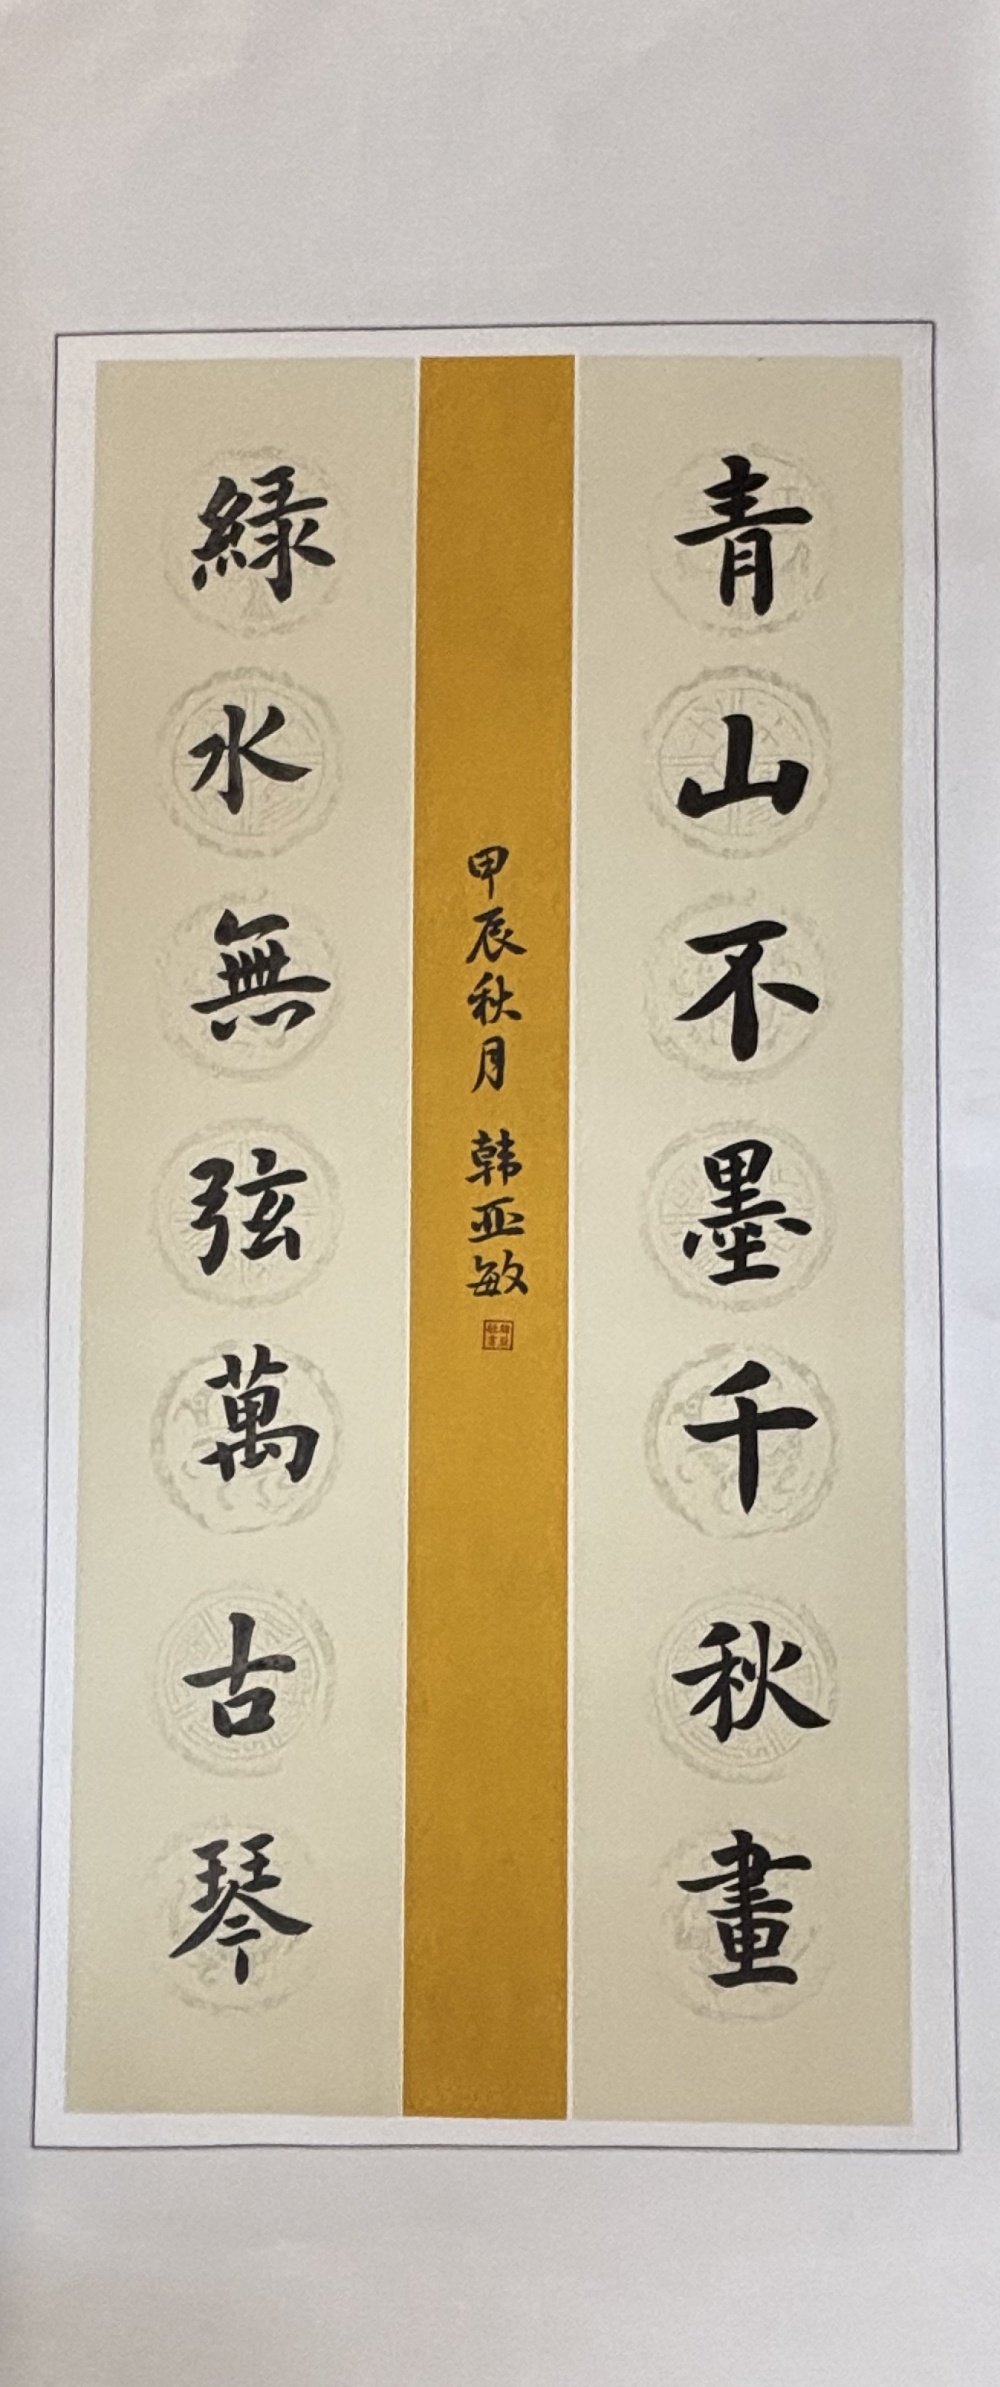 青山不墨千秋畫
甲辰秋月 韩亚敏
緑水無弦萬古琴